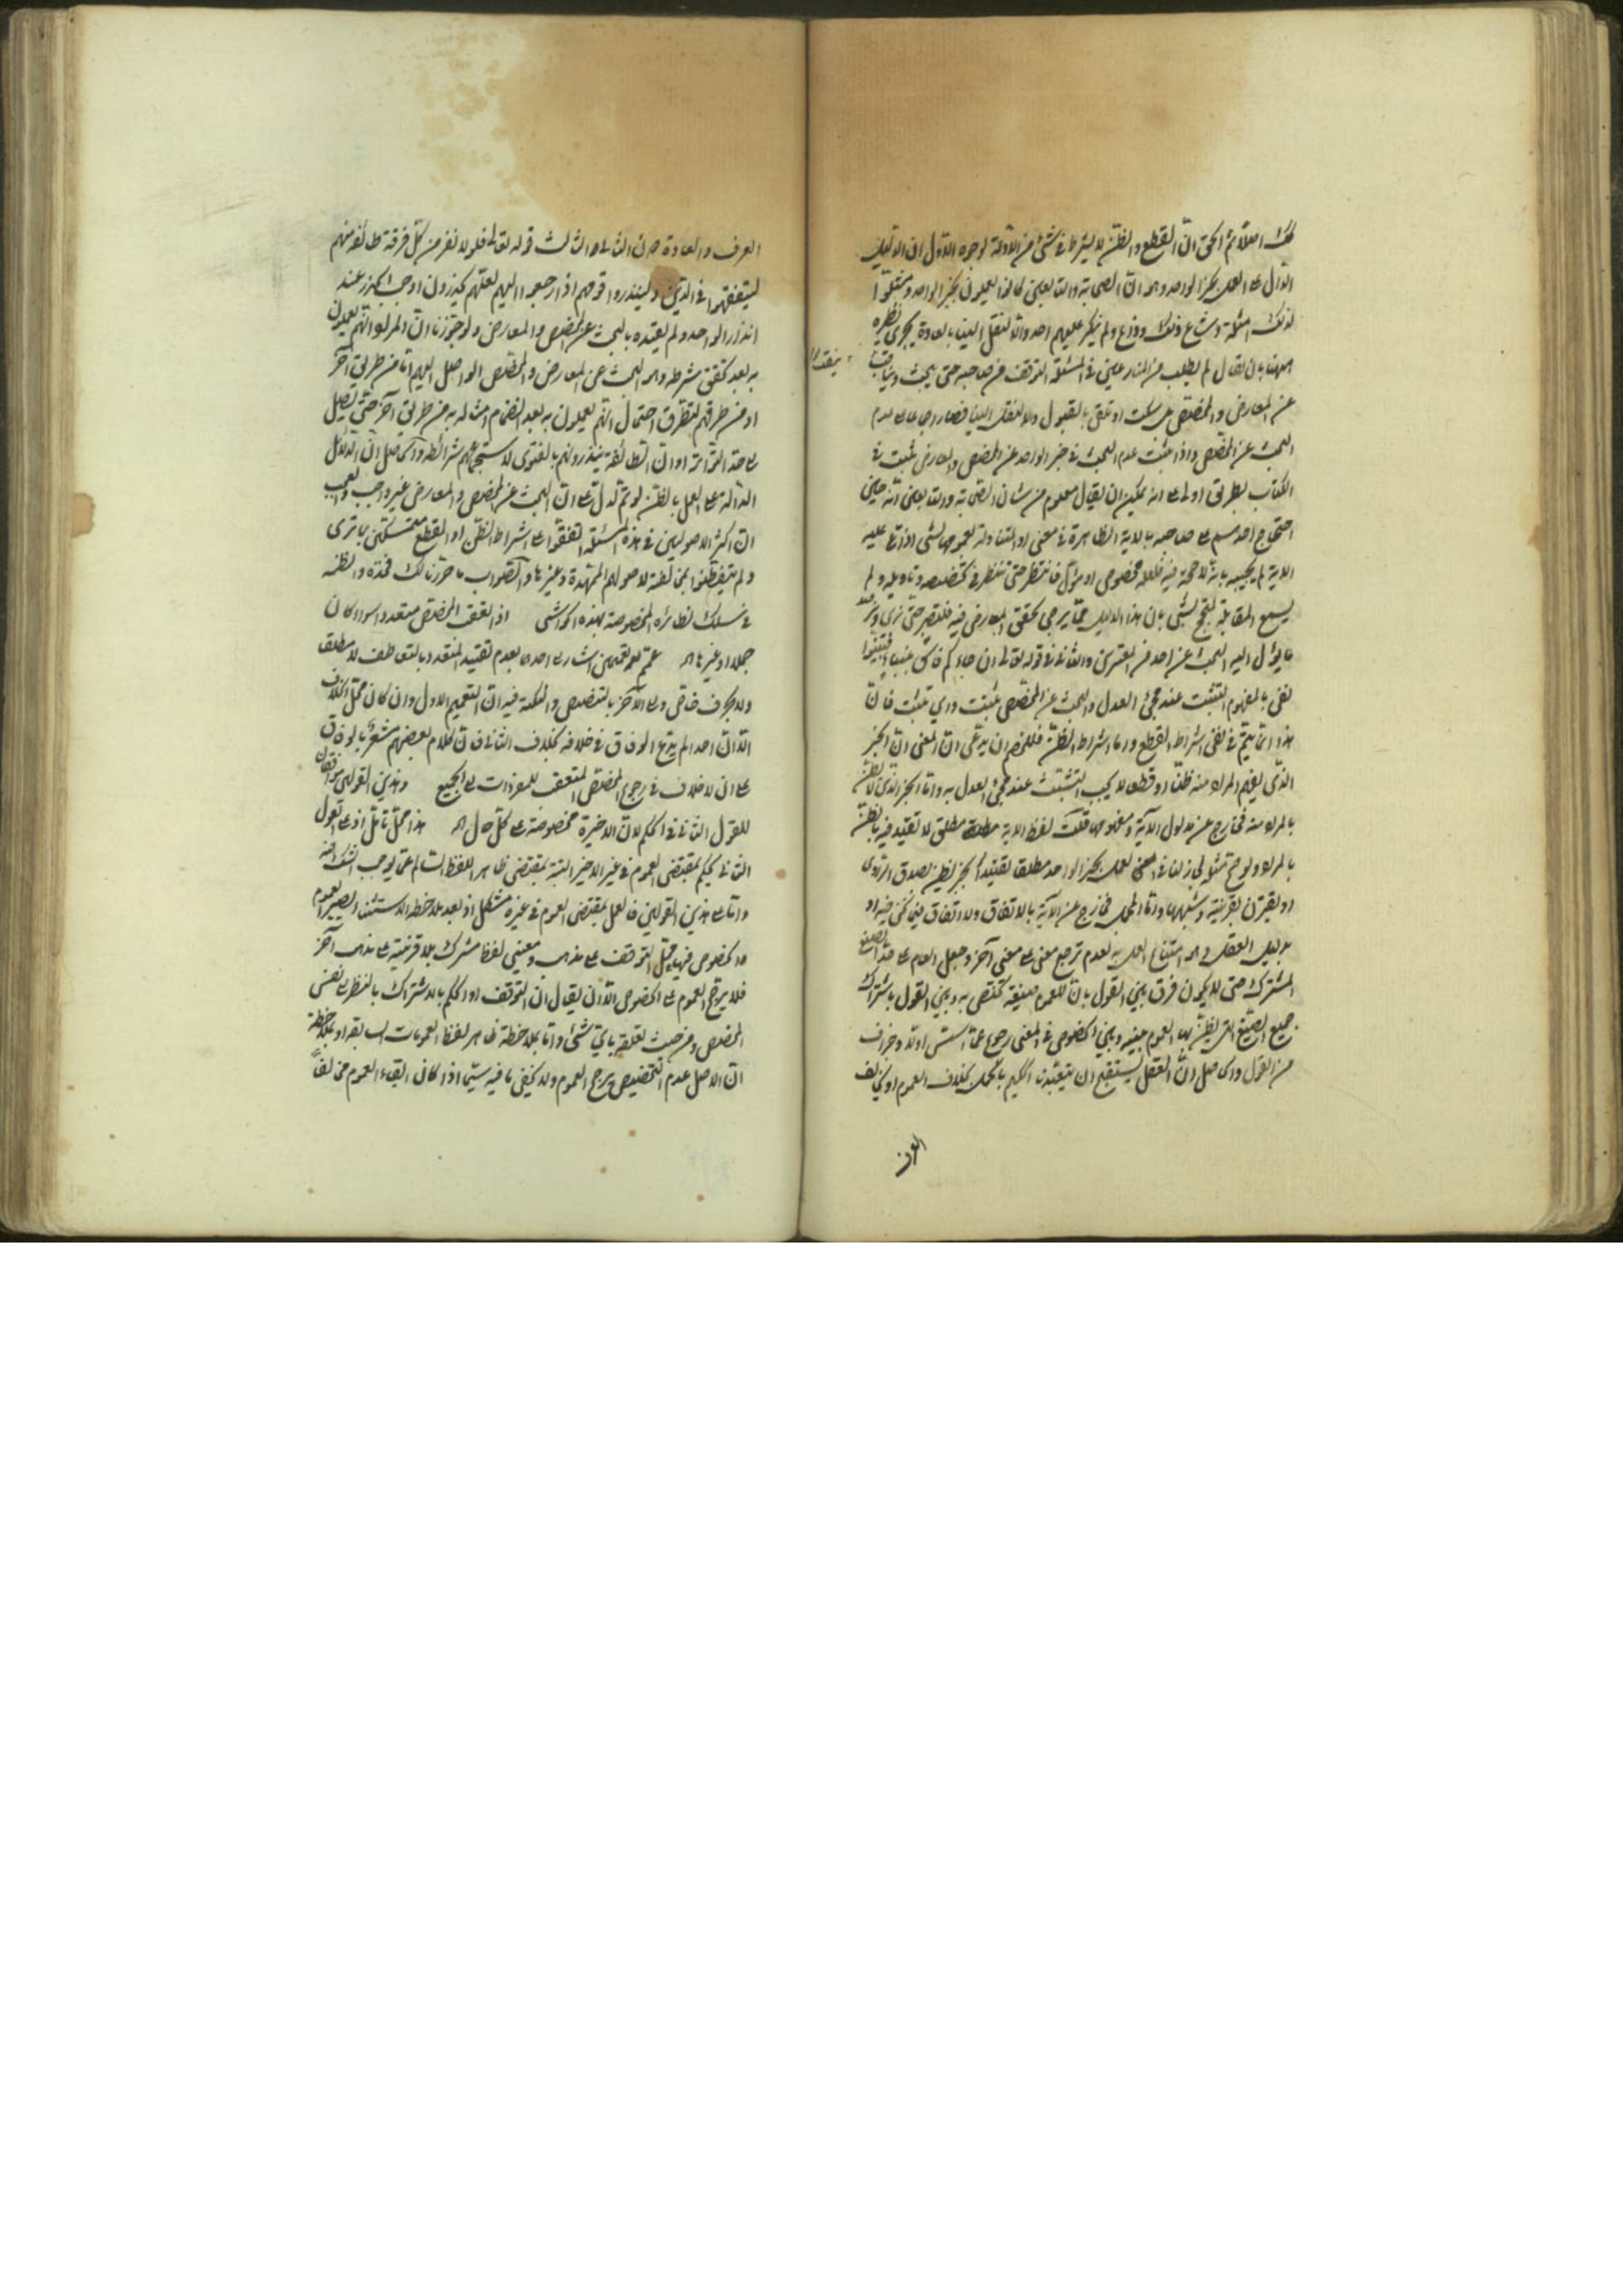 اصلا ثم الحق ان القطع والظن لا يشترط في شئ من الادلة لوجوه الاول ان الدليل
الدال على العمل بخبر الواحد وهو ان الصحابة والتابعين كانوا يعملون بخبر الواحد
لذلك امثلة وشاع ذلك وذاع ولم ينكر عليهم احد والا لنقل الينا بالعادة يجرى نظيره
ههنا بان يقال لم يطلب من المتنازعين في المسئلة التوقف من صاحبه حتى يبحث
عن المعارض والمخصص بل سكت او تلقى بالقبول والا لنقل الينا فصار اجماعا على عدم
البحث عن المخصص واذا ثبت عدم البحث في خبر الواحد عن المخصص والمعارض ثبت في
الكتاب بطريق اولى على انه يمكن ان يقال معلوم من شان الصحابة والتابعين انه حين
احتجاج احدهم على صاحبه بالاية الظاهرة في معنى او المتناولة بعمومها لشئ
الاية لم يجبه بانه لا حجة فيه فلعله مخصوص او مؤول فانتظر حتى ننظر في تخصيصه وتاويله ولم
يسمع المقابلة بشئ بان هذا الدليل مما يرجى تحقق المعارض فيه فلتصبر حتى نرى
ما يؤل اليه البحث عن احد من المعتبرين والثاني في قوله تعالى ان جاءكم فاسق بنباء فتبينوا
نفى بالمفهوم التثبت عند مجئ العدل والبحث عن المخصص تثبت واي تثبت فان
هذا انما يتم في نفى اشتراط القطع واما اشتراط الظن فللخصم ان يدعى ان المعنى ان الخبر
الذى يفهم المراد منه ظنا او قطعا لا يجب التثبت عند مجئ العدل به واما الخبر الذى لا يظن
بالمراد منه فخارج عن مدلول الآية ومفهومها قلت لفظ الاية مطلق لا تقييد فيه بالظن
بالمراد
او يقترن بقرينة وشبهها واما المجمل فخارج عن الآية بالاتفاق ولا اتفاق فيما نحن فيه او
بدليل العقل وهو امتناع العمل به لعدم ترجيح معنى على معنى آخر وجعل العام على هذا
المشترك حتى لا يكون فرق بين القول بان للعموم صيغة تختص به وبين القول باشتراك
جميع الصيغ التي يظن بها العموم بينه وبين الخصوص في المعنى رجوع عما اسس اولا وخراف
من القول والحاصل ان العقل يستقبح ان يتعبدنا الحكيم بالمجمل بخلاف العموم او يخالف
العرف
العرف والعادة من الثاني والثالث قوله تعالى فلولا نفر من كل فرقة طائفة منهم
ليتفقهوا في الدين ولينذروا قومهم اذا رجعوا اليهم لعلهم يحذرون اوجب الحذر عند
انذار الواحد ولم يقيده بالبحث عن المخصص والمعارض ولو جوزنا ان المراد انهم يعملون
به بعد تحقق شرطه وهو البحث عن المعارض والمخصص الواصل اليهم اما من طريق آخر
او من طرقهم لتطرق احتمال انهم يعملون به بعد انضمام امثاله به من طريق آخر حتى يصل
الى حد التواتر او ان الطائفة ينذرونهم بالفتوى لاستجماعهم شرائطه والحاصل ان الدلائل
الدالة على العمل بالظن لو تم تدل على ان البحث عن المخصص والمعارض غير واجب والعجب
ان اكثر الاصوليين في هذه المسئلة اتفقوا على اشتراط الظن او القطع متمسكين بما ترى
ولم يتفطنوا بمخالفته لاصولهم الممهدة وغيرها والصواب ما حررنا لك فخذه وانظمه
في سلك نظائره المخصوصة بهذه الحواشى اذا تعقب المخصص متعددا سواء كان
جملا او غيرها عمم للتعميمين اشار الى احدهما بعدم تقييد المتعدد بالتعاطف لا مطلقا
ولا بحرف خاص والى الآخر بالتخصيص والنكتة فيه ان التعميم الاول وان كان محتمل الخلاف
الا ان احدا لم يدع الوفاق في خلافه بخلاف الثاني فان كلام بعضهم مشعر بالوفاق
على ان لا خلاف في رجوع المخصص المتعقب للمفردات الى الجميع وهذين القولين موافقان
للقول الثاني في الحكم لان الاخيرة مخصوصة على كل حال هذا محل تامل اذ على القول
الثاني يحكم بمقتضى العموم في غير الاخير البتة بمقتضى ظاهر اللفظ السالم عما يوجب الشك فيه
واما على هذين القولين فالعمل بمقتضى العموم في غيره مشكل اذ بعد ملاحظة الاستثناء يصير العموم
والخصوص فيها محتمل التوقف على مذهب ومعنيى لفظ مشترك بلا قرينة على مذهب آخر
فلا يرجح العموم على الخصوص الا ان يقال ان التوقف او الحكم بالاشتراك بالنظر الى نفس
المخصص ومن حيث تعلقه باى شئ واما بملاحظة ظاهر لفظ العمومات السابقة او بملاحظة
ان الاصل عدم التخصيص يرجح العموم ولا يخفى ما فيه سيما اذا كان ابقاء العموم مخالفا